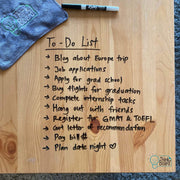 To-Do List
→ Blog about Europe trip
→ Job applications
→ Apply for grad school
→ Buy flights for graduation
→ Complete internship tasks
→ Hang out with friends
→ Register for GMAT & TOEFL
→ Get letter of recommendation
→ Pay bill #
→ Plan date night ♡